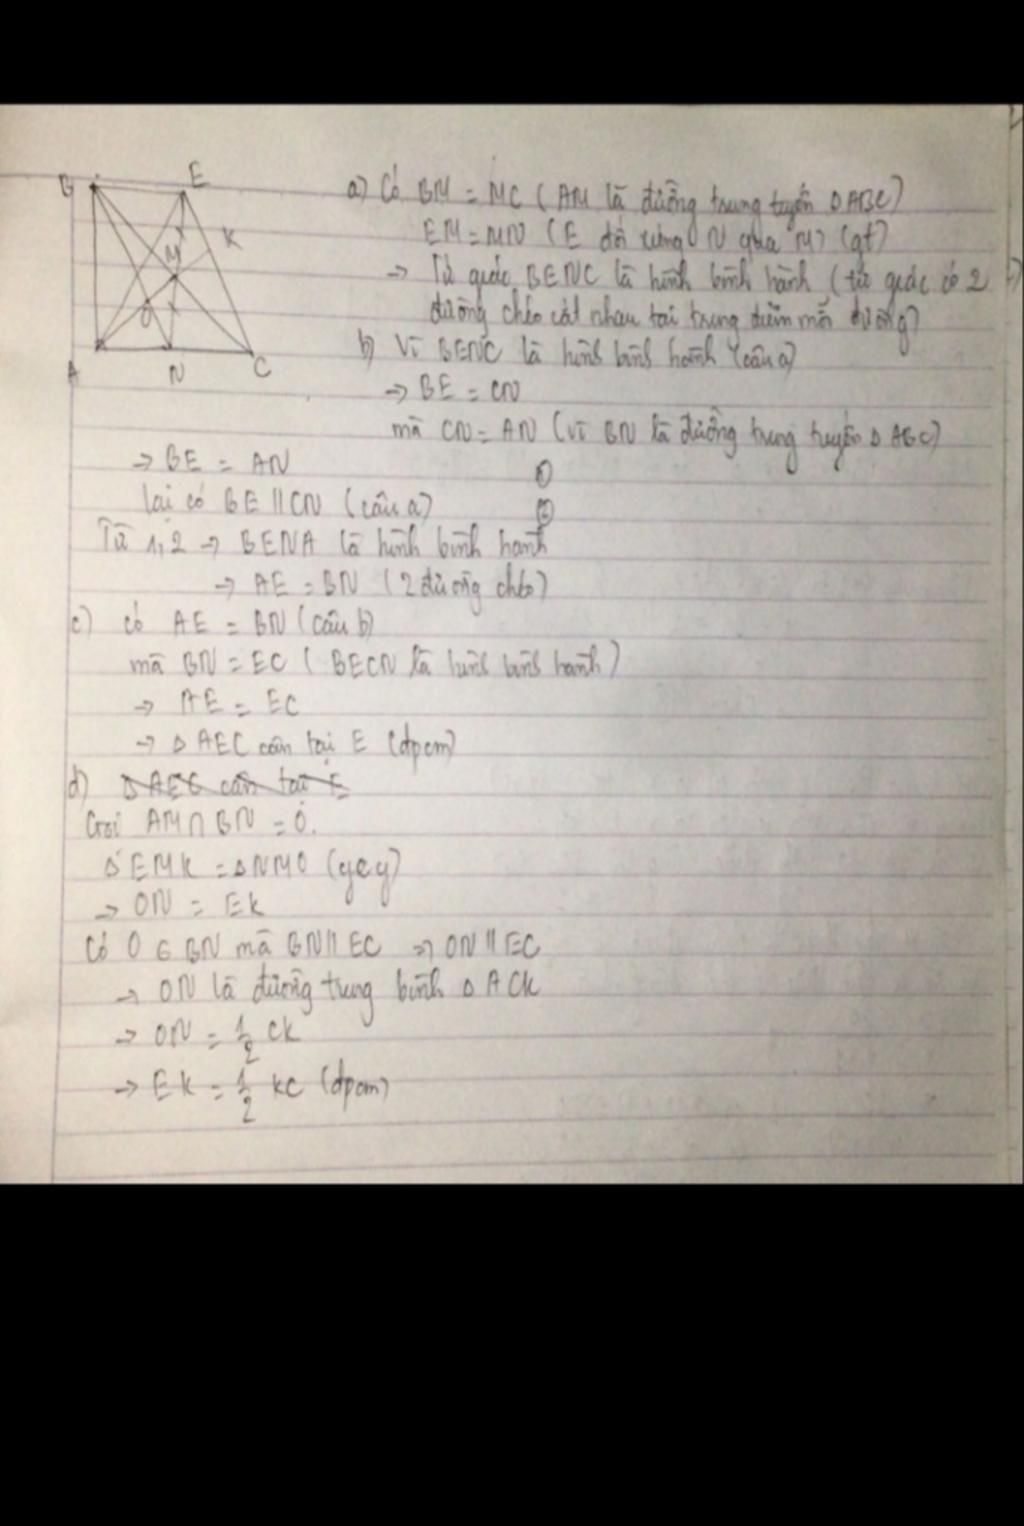 B
E
K
M
O
A
N
C
a) Có BM = MC (AM là đường trung tuyến Δ ABC)
EM = MN (E đối xứng N qua M) (gt)
→ Tứ giác BENC là hình bình hành (tứ giác có 2
đường chéo cắt nhau tại trung điểm mỗi đường)
b) Vì BENC là hình bình hành (câu a)
→ BE = CN
mà CN = AN (vì BN là đường trung tuyến Δ ABC)
→ BE = AN ①
lại có BE // CN (câu a) ②
Từ 1, 2 → BENA là hình bình hành
→ AE = BN (2 đường chéo)
c) có AE = BN (câu b)
mà BN = EC (BECN là hình bình hành)
→ AE = EC
→ Δ AEC cân tại E (đpcm)
d) Δ AEC cân tại E
Gọi AM ∩ BN = O.
Δ EMK = Δ NMO (gcg)
→ ON = EK
Có O ∈ BN mà BN // EC → ON // EC
→ ON là đường trung bình Δ ACK
→ ON = 1/2 CK
→ EK = 1/2 KC (đpcm)